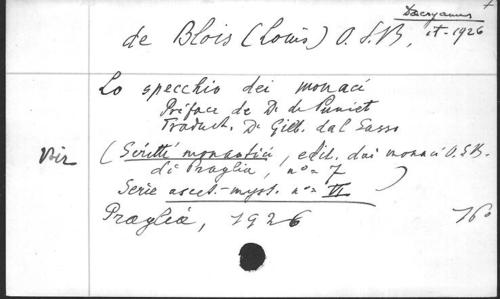 Dacryanus +
de Blois (Louis) O.S.B. it-1926
Lo specchio dei monaci
Préface de D. de Puniet
Traduct. D. Gilb. dal Sasso
(Scritti monastici, edit. dai monaci O.S.B.
di Praglia, n° = 7
Serie ascet.-myst. n° = VI )
Praglia, 1926 16°